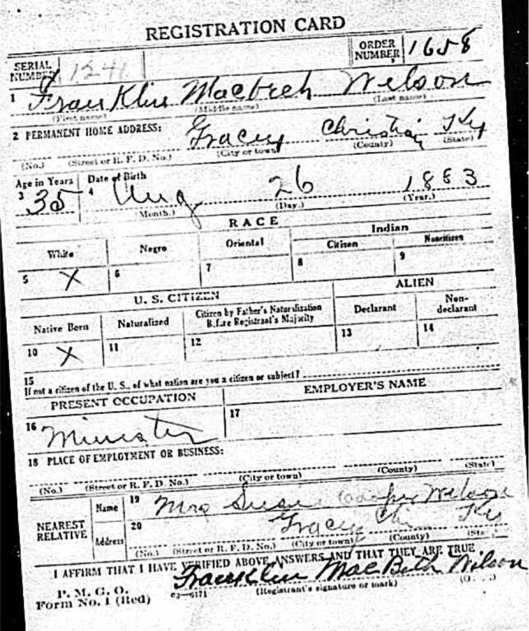 REGISTRATION CARD
SERIAL NUMBER 1241 ORDER NUMBER 1658
1 Franklin Macbeth Wilson
(First name) (Middle name) (Last name)
2 PERMANENT HOME ADDRESS: Gracey Christian Ky
(No.) (Street or R. F. D. No.) (City or town) (County) (State)
Age in Years Date of Birth
3 35 4 Aug 26 1883
(Month.) (Day.) (Year.)
RACE
White Negro Oriental Indian
Citizen Noncitizen
5 X 6 7 8 9
U. S. CITIZEN ALIEN
Native Born Naturalized Citizen by Father's Naturalization Before Registrant's Majority Declarant Non-declarant
10 X 11 12 13 14
15
If not a citizen of the U. S., of what nation are you a citizen or subject?
PRESENT OCCUPATION EMPLOYER'S NAME
16 Minister 17
18 PLACE OF EMPLOYMENT OR BUSINESS:
(No.) (Street or R. F. D. No.) (City or town) (County) (State)
NEAREST RELATIVE Name 19 Mrs Susie Cooper Wilson
Address 20 Gracey Ch Ky
(No.) (Street or R. F. D. No.) (City or town) (County) (State)
I AFFIRM THAT I HAVE VERIFIED ABOVE ANSWERS AND THAT THEY ARE TRUE
P. M. G. O.
Form No. 1 (Red) Franklin MacBeth Wilson
(Registrant's signature or mark)